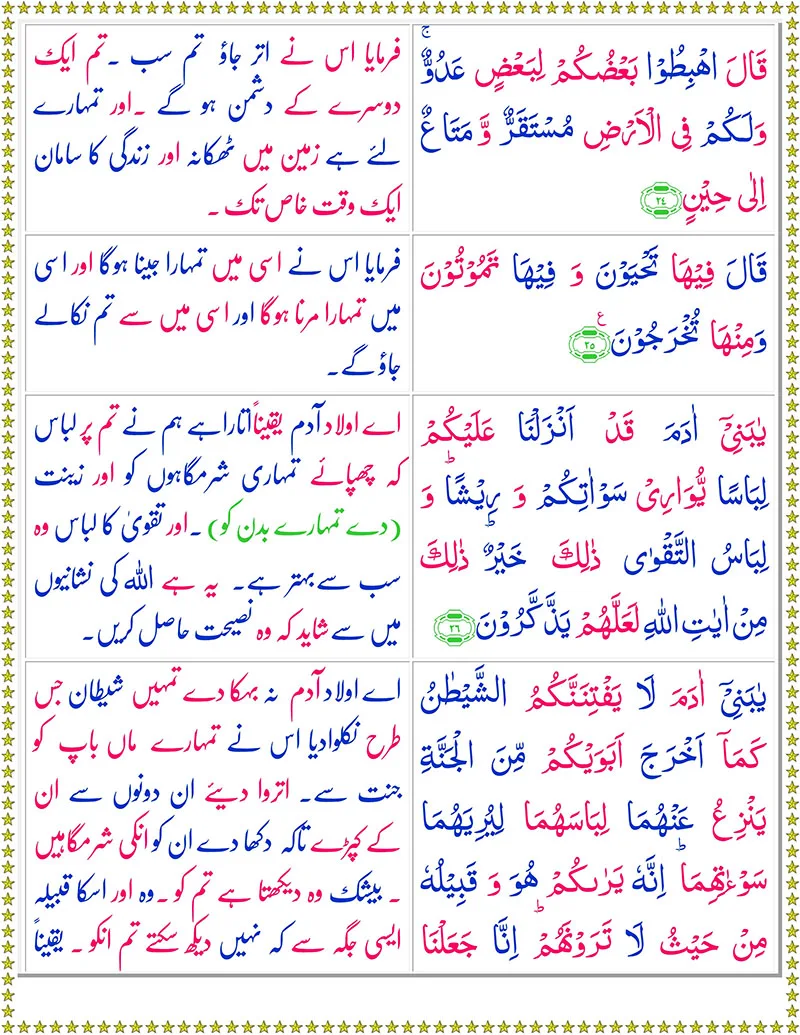 قَالَ اهْبِطُوْا بَعْضُكُمْ لِبَعْضٍ عَدُوٌّ ۚ
وَلَكُمْ فِی الْاَرْضِ مُسْتَقَرٌّ وَّ مَتَاعٌ
اِلٰی حِیْنٍ ۲۴
فرمایا اس نے اتر جاؤ تم سب ۔ تم ایک
دوسرے کے دشمن ہو گے ۔ اور تمہارے
لئے ہے زمین میں ٹھکانہ اور زندگی کا سامان
ایک وقت خاص تک ۔
قَالَ فِیْهَا تَحْیَوْنَ وَ فِیْهَا تَمُوْتُوْنَ
وَمِنْهَا تُخْرَجُوْنَ ۲۵ ع
فرمایا اس نے اسی میں تمہارا جینا ہوگا اور اسی
میں تمہارا مرنا ہوگا اور اسی میں سے تم نکالے
جاؤ گے۔
یٰبَنِیْۤ اٰدَمَ قَدْ اَنْزَلْنَا عَلَیْكُمْ
لِبَاسًا یُّوَارِیْ سَوْاٰتِكُمْ وَ رِیْشًا ؕ وَ
لِبَاسُ التَّقْوٰی ذٰلِكَ خَیْرٌ ؕ ذٰلِكَ
مِنْ اٰیٰتِ اللّٰهِ لَعَلَّهُمْ یَذَّكَّرُوْنَ ۲۶
اے اولاد آدم یقیناً اتارا ہے ہم نے تم پر لباس
کہ چھپائے تمہاری شرمگاہوں کو اور زینت
(دے تمہارے بدن کو) ۔ اور تقویٰ کا لباس وہ
سب سے بہتر ہے۔ یہ ہے اللہ کی نشانیوں
میں سے شاید کہ وہ نصیحت حاصل کریں۔
یٰبَنِیْۤ اٰدَمَ لَا یَفْتِنَنَّكُمُ الشَّیْطٰنُ
كَمَاۤ اَخْرَجَ اَبَوَیْكُمْ مِّنَ الْجَنَّةِ
یَنْزِعُ عَنْهُمَا لِبَاسَهُمَا لِیُرِیَهُمَا
سَوْءٰتِهِمَا ؕ اِنَّهٗ یَرٰىكُمْ هُوَ وَ قَبِیْلُهٗ
مِنْ حَیْثُ لَا تَرَوْنَهُمْ ؕ اِنَّا جَعَلْنَا
اے اولاد آدم نہ بہکا دے تمہیں شیطان جس
طرح نکلوادیا اس نے تمہارے ماں باپ کو
جنت سے۔ اتروا دیئے ان دونوں سے ان
کے کپڑے تاکہ دکھا دے ان کو انکی شرمگاہیں
۔ بیشک وہ دیکھتا ہے تم کو ۔ وہ اور اسکا قبیلہ
ایسی جگہ سے کہ نہیں دیکھ سکتے تم انکو ۔ یقیناً